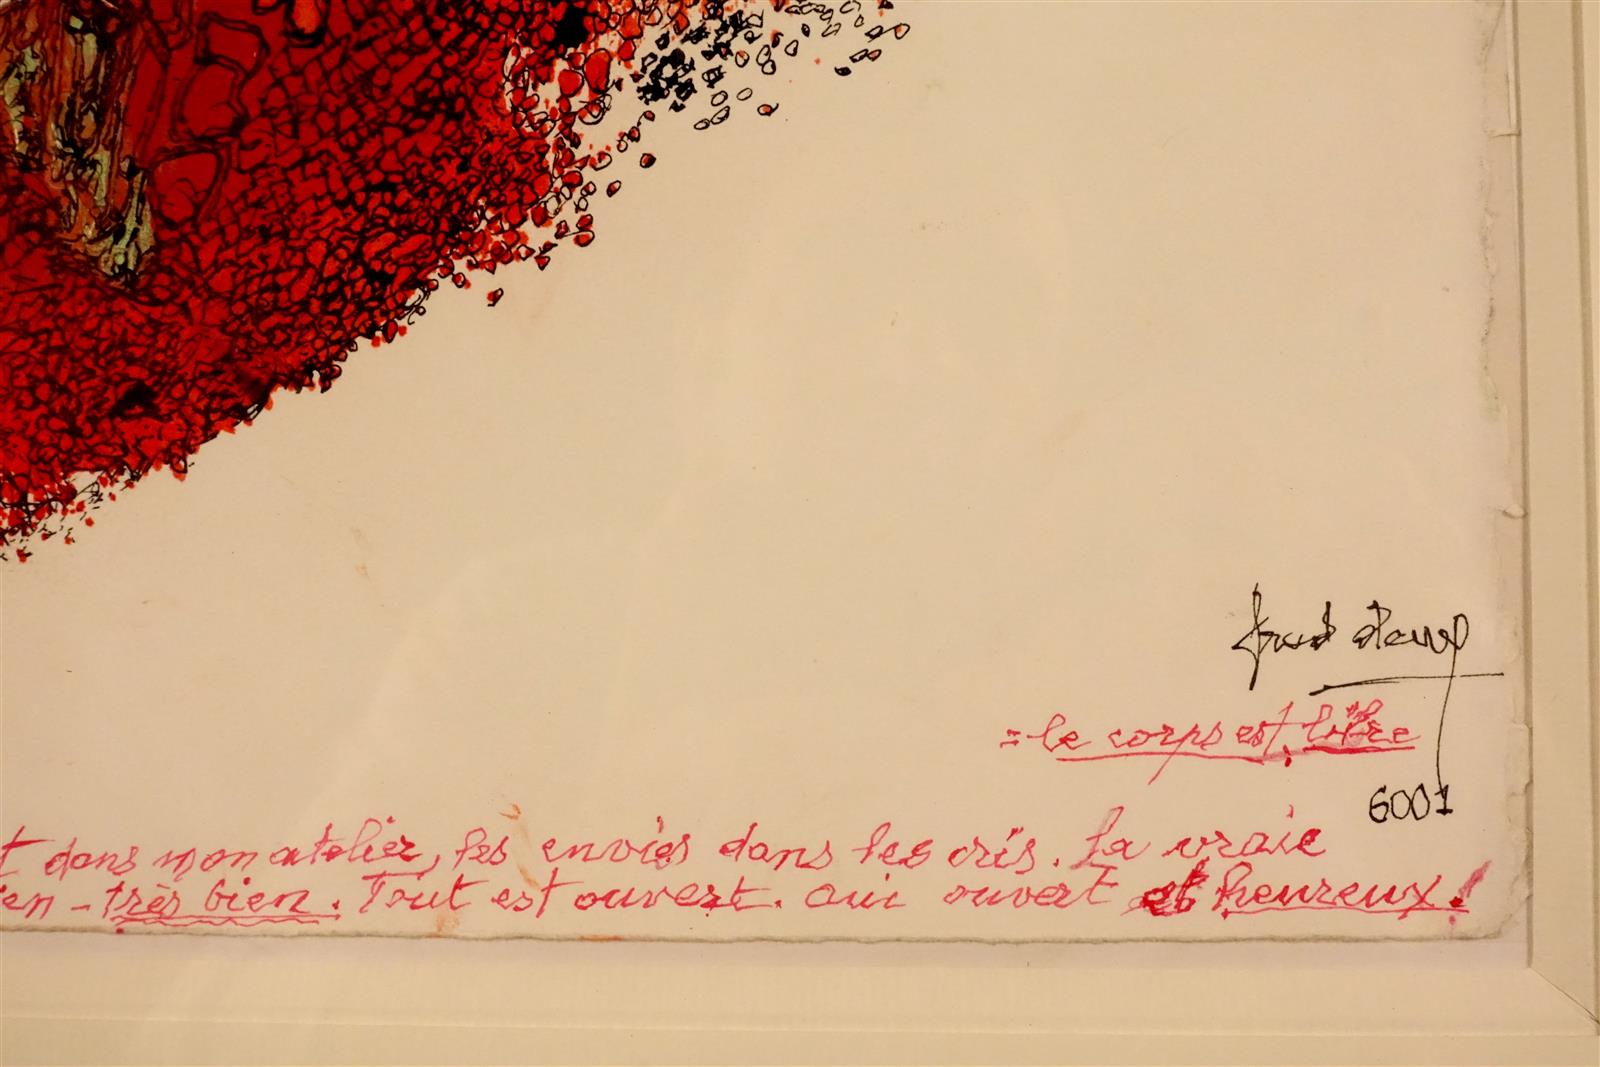 fred deux
= le corps est libre
6001
t dans mon atelier, les envies dans les cris. La vraie
en - très bien. Tout est ouvert. oui ouvert et heureux!